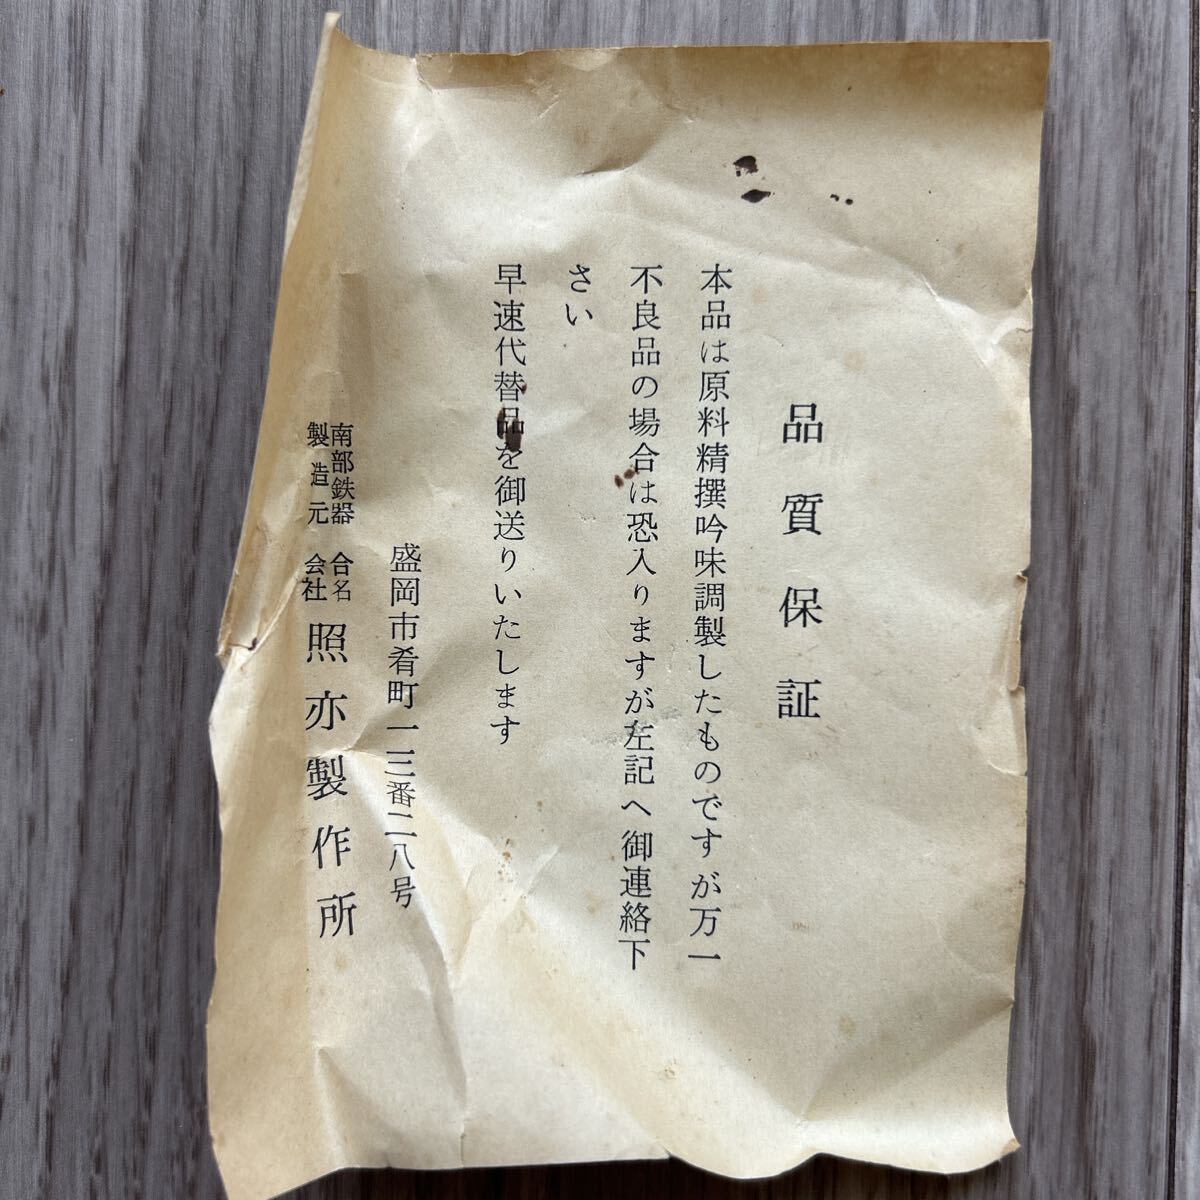 品質保証
本品は原料精撰吟味調製したものですが万一
不良品の場合は恐入りますが左記へ御連絡下
さい
早速代替品を御送りいたします
盛岡市肴町一二三番二八号
南部鉄器
製造元
合名
会社
照亦製作所